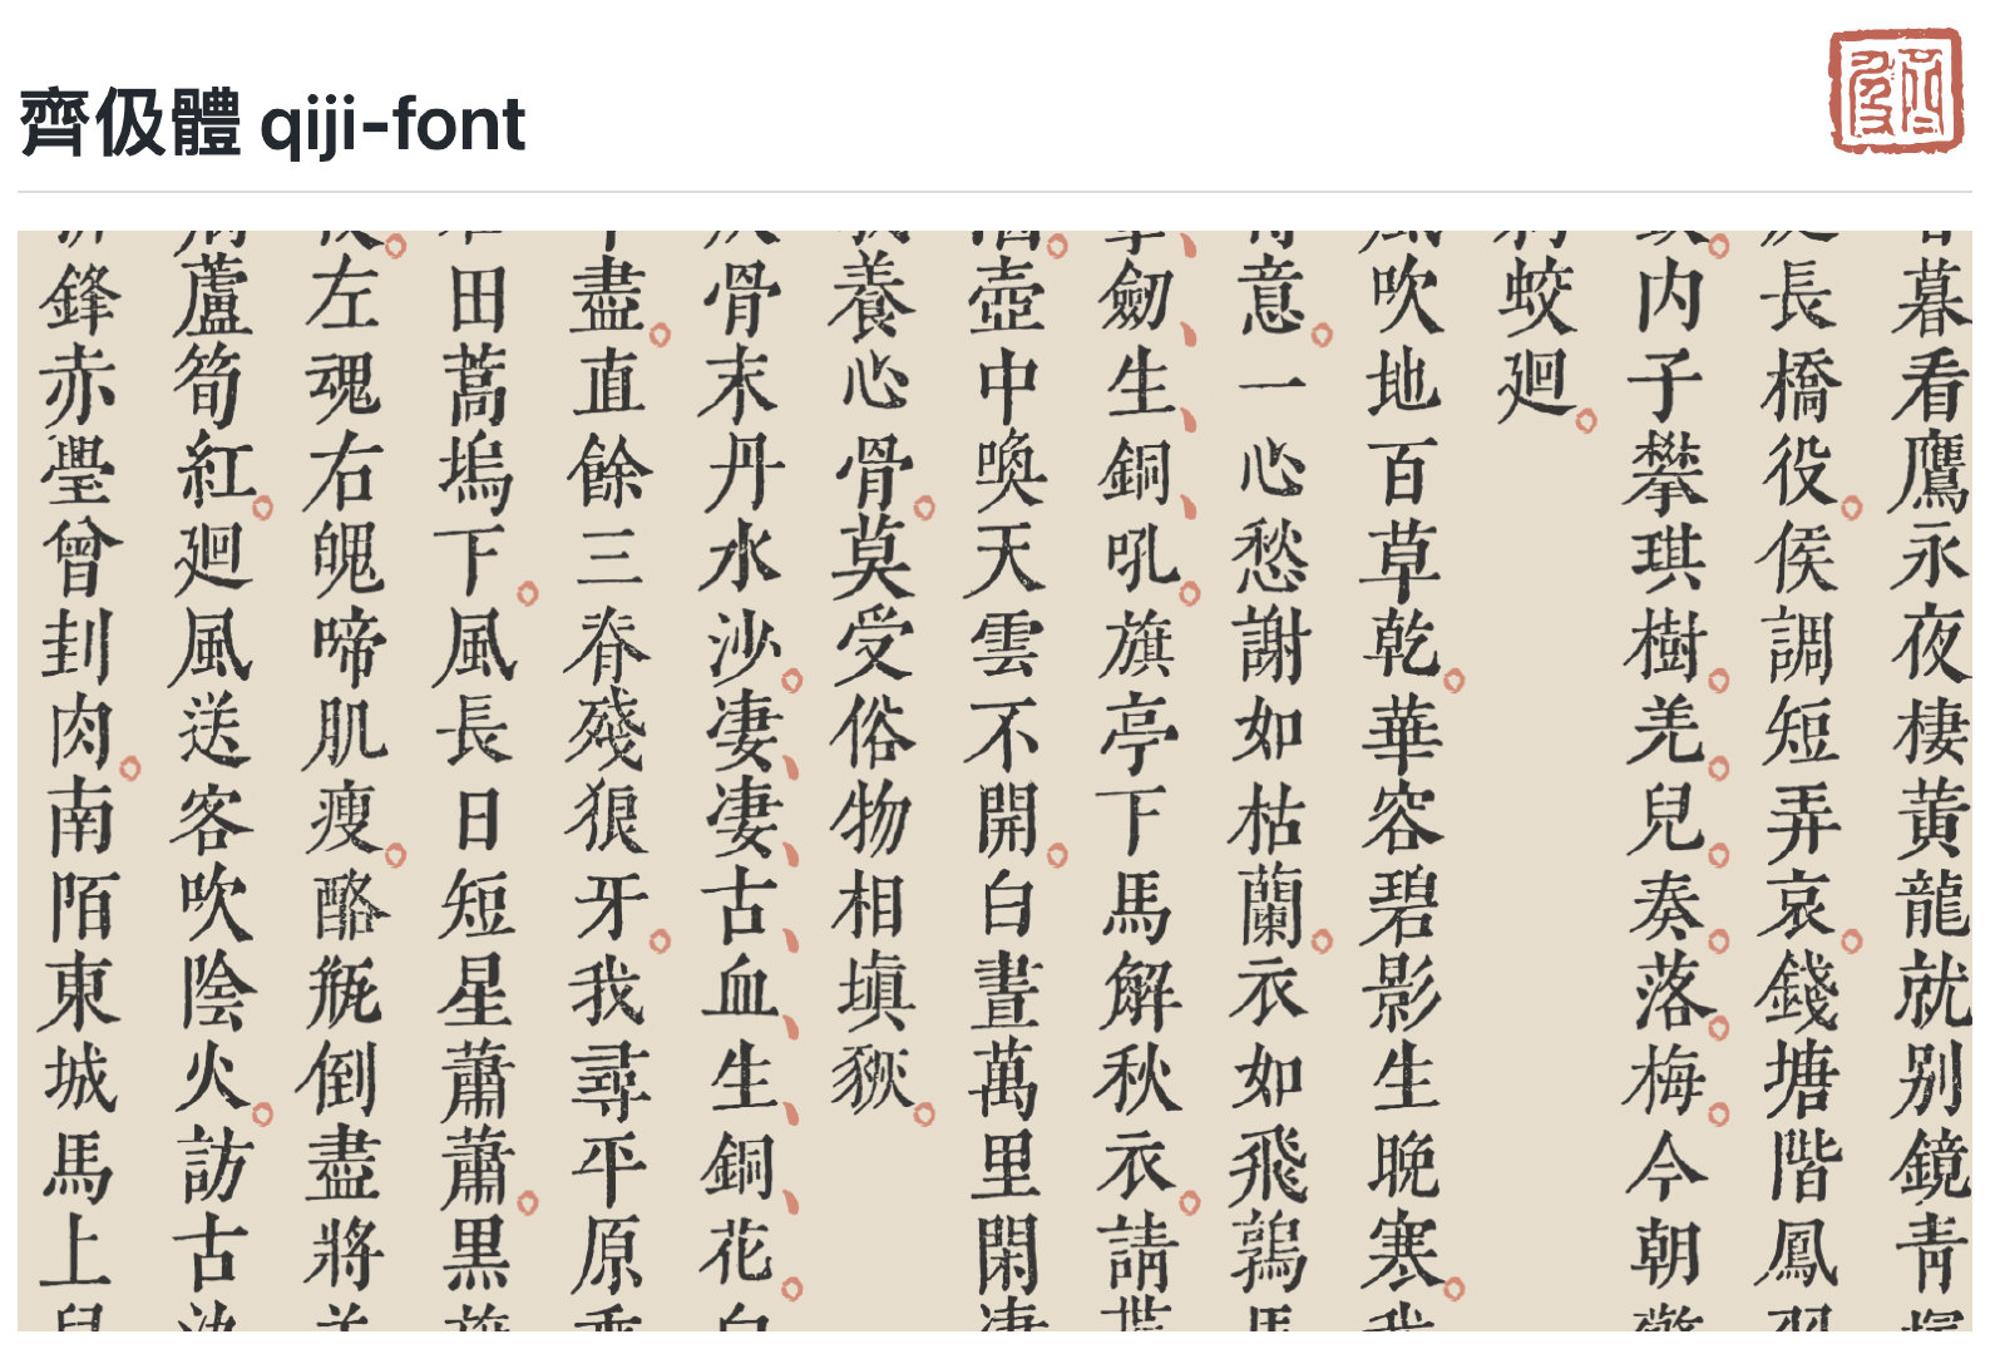 齊伋體 qiji-font
暮看鷹永夜棲黃龍就別鏡青
長橋役。侯調短弄哀。錢塘階鳳
内子攀琪樹。羌。兒。奏。落。梅。今朝
蛟廻。
吹地百草乾。華容碧影生晚寒。
意。一心愁謝如枯蘭。衣如飛鶉
劒、生、銅、吼。旗亭下馬解秋衣。請
壺中喚天雲不開。白晝萬里閑
養心骨。莫受俗物相塡豗。
骨末丹水沙。凄、凄、古、血、生、銅、花。
盡。直餘三脊殘狼牙。我尋平原
田蒿塢下。風長日短星蕭蕭。黒
左魂右魄啼肌瘦。酪瓶倒盡將
蘆筍紅。廻風送客吹陰火。訪古
鋒赤璺曾刲肉。南陌東城馬上